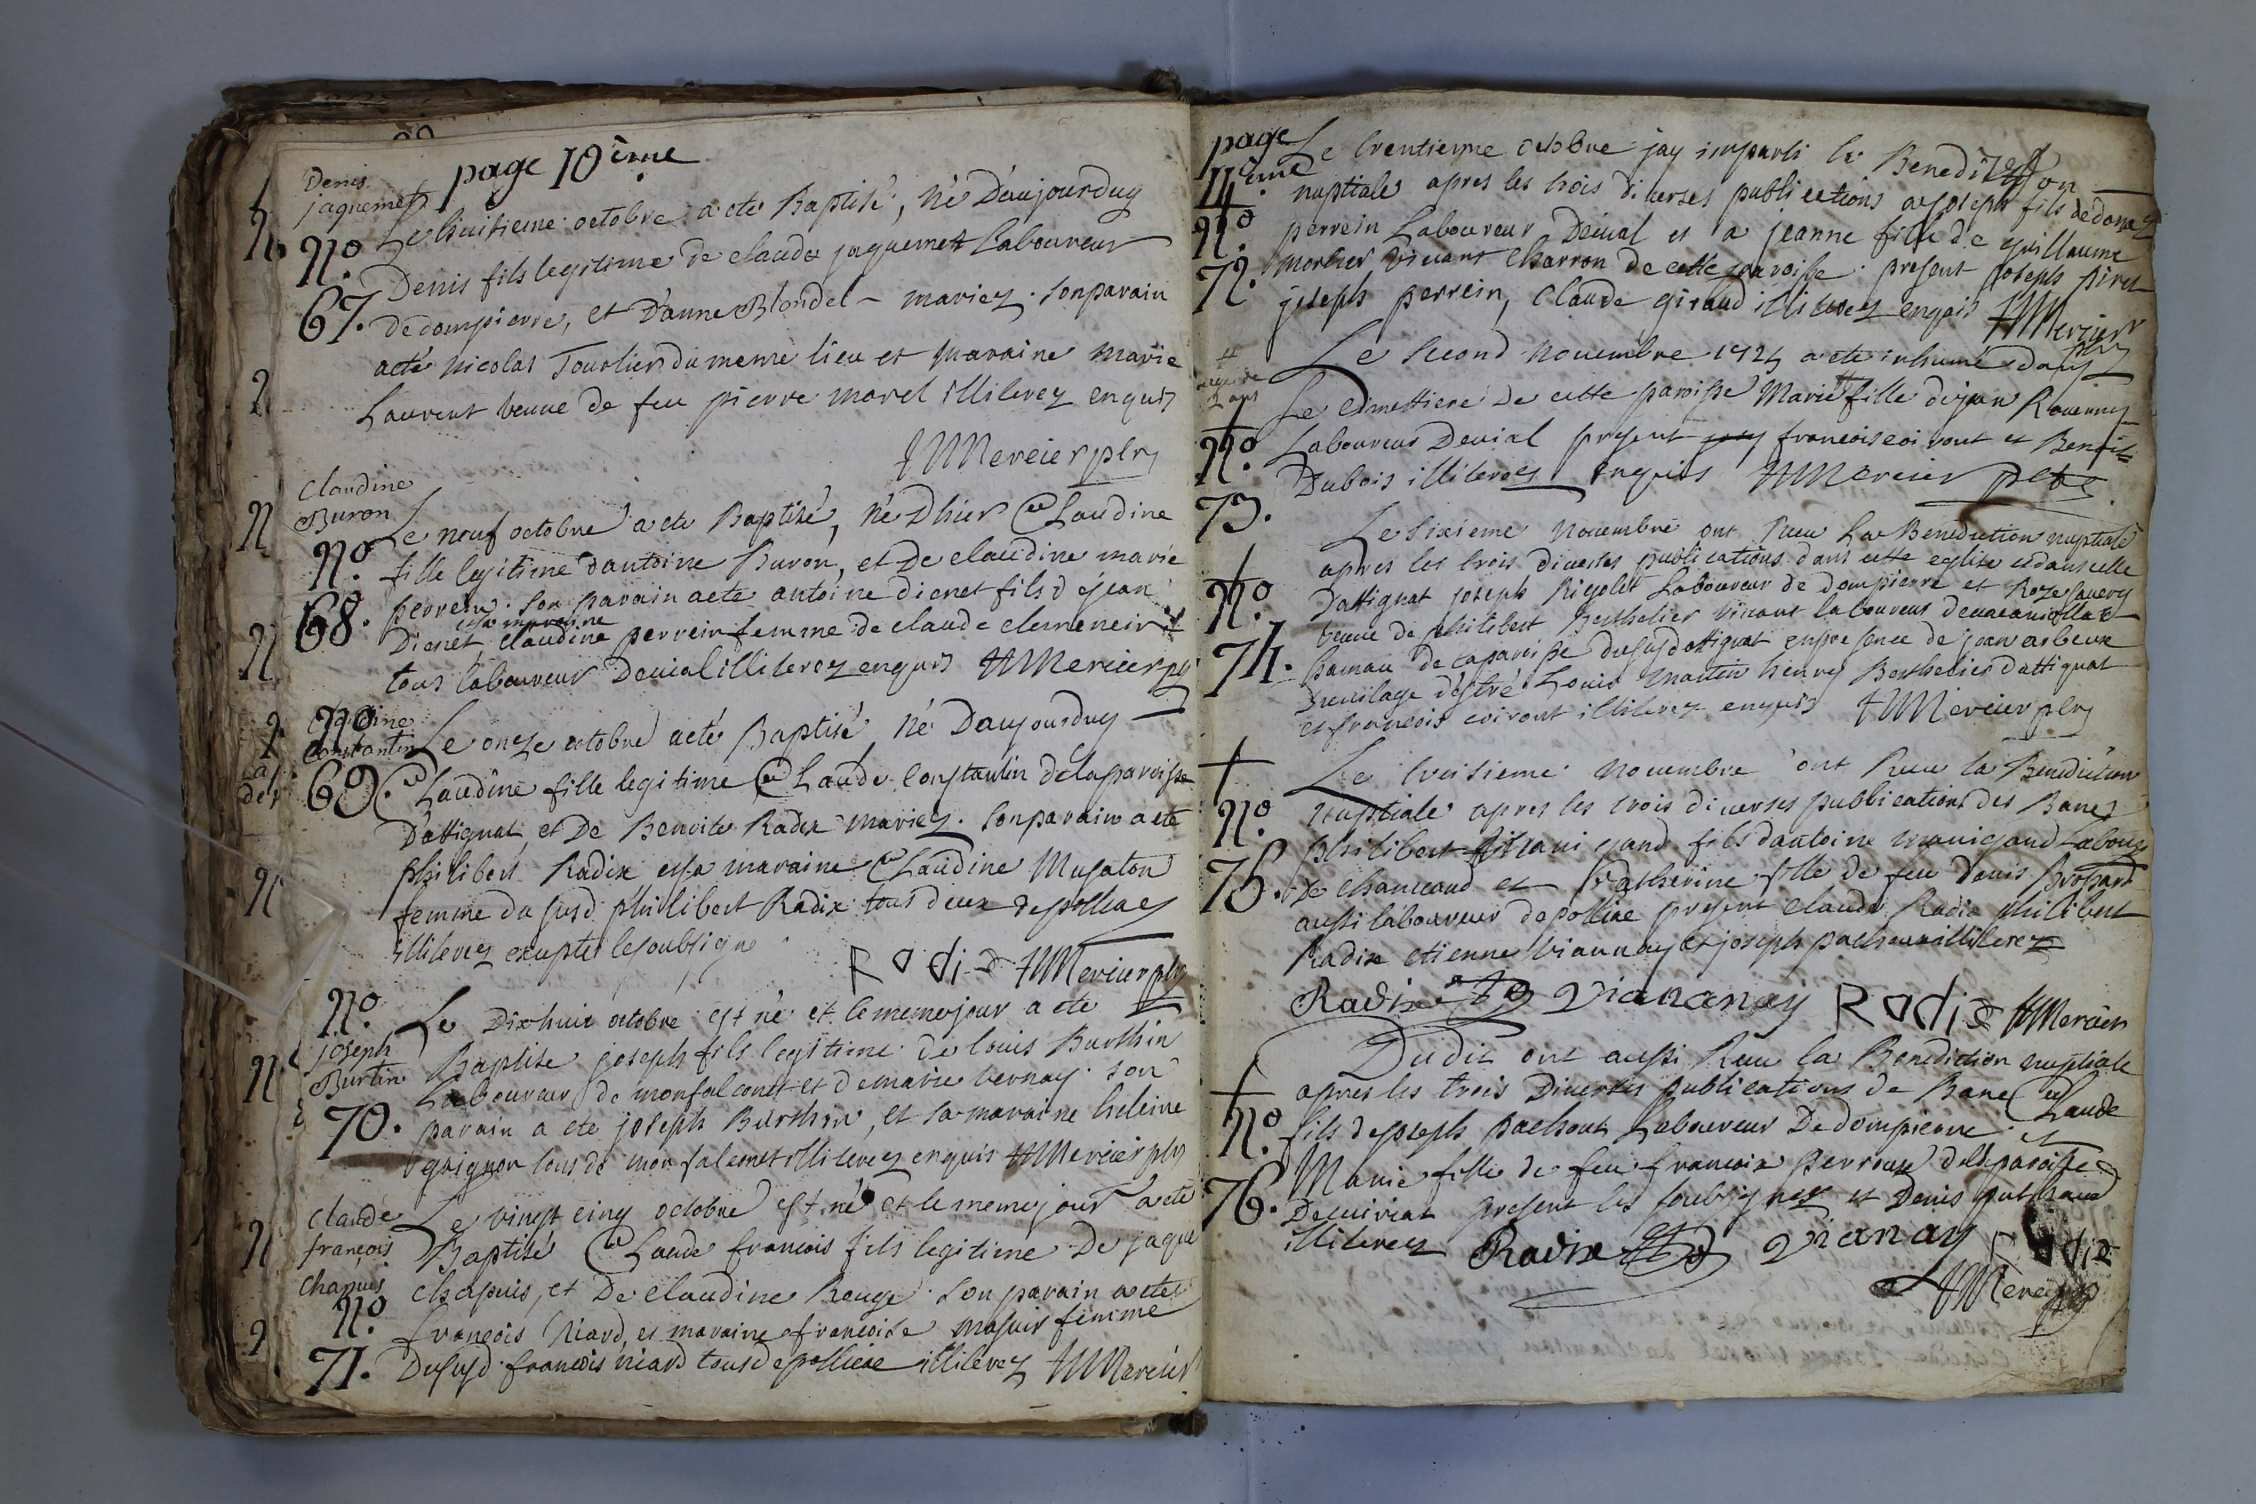 page 10ème
Denis
jaquemet
No
67.
Le huitieme octobre a eté Baptisé, né D'aujourduy
Denis fils legitime de claude jaquemet Laboureur
de dompierre, et D'anne Blondel - mariez. son parain
a eté nicolas Tourlier du meme lieu et maraine marie
Laurent veuve de feu pierre morel illiterez enquis
Mercier ptre
Claudine
Buron
No
68.
Le neuf octobre a ete Baptisé, né D'hier Claudine
fille legitime dantoine Buron, et De claudine marie
perrein. son parain a eté antoine dienet fils d ejean
Dienet, et sa maraine claudine perrein femme de claude
tous laboureur Devial illiterez enquis Mercier ptre
Claudine
Constantin
No
69.
Le onze octobre a eté Baptisé né Daujourduy
Claudine fille legitime Claude Constantin de la paroisse
D'attignat et De Benoite Radix mariez. son parain a eté
philibert Radix et sa maraine Claudine Mugaton
femme du susd. philibert Radix tous deux de polliae
illiterez excepté le soubsigné
Radix Mercier ptre
No
joseph
Burtin
70.
Le Dixhuit octobre est né et le meme jour a ete
Baptise joseph fils legitime de louis Burthin
Laboureur de monfalconet et de marie vernay. son
parain a ete joseph Burthin, et sa maraine heleine
guignon tous de monfalconet illiterez enquis Mercier ptre
Claude
françois
Chapuis
No
71.
Le vingt cinq octobre est né et le meme jour a eté
Baptisé Claude francois fils legitime De jaque
chapuis, et De claudine Rouge. son parain a eté
françois niard, et maraine francoise masuir femme
Dusud. francois niard tous de polliae illiterez Mercier
page
11ème
No
72.
Le trentieme octobre jay imparti la Benediction
nuptiale apres les trois diverses publications a joseph fils de
perrein Laboureur Devial et a jeanne fille de guillaume
mortier vivant Charron de cette paroisse. present joseph
joseph perrein, Claude giraud illiterez enquis Mercier
ptre
No
73.
Le second novembre 1724 a ete inhumé dans
Le cimettiere De cette paroisse Marie fille de jean
Laboureur Devial present francois coiront et Benoit
Dubois illiterez enquis Mercier ptre
No
74.
Le sixieme novembre ont Receu La Benediction nuptiale
apres les trois diverses publications dans cette eglise et dans celle
D'attignat joseph Rigolet Laboureur de Dompierre et Roze
veuve de philibert Berthelier vivant laboureur
hameau de la paroisse dususd attignat en presence de jean
du vilage d'estré Louis Martin henry Berthelier d'attignat
et francois coiront illiterez enquis Mercier ptre
No
75.
Le troisieme novembre ont Receu la Benediction
nuptiale apres les trois diverses publications des Banes
philibert manigand fils dantoine manigand Labour
de chaneand et Catherine fille de feu Denis Brossard
aussi laboureur de polliae present Claude Radix philibert
Radix etienne viannay et joseph pachout illiterez
Radix viananay Radix Mercier
No
76.
Dudit ont aussi Receu la Benediction nuptiale
apres les trois Diverses publications de Bane Claude
fils de joseph pachout Laboureur De dompierre et
Marie fille de feu francois perroux de la paroisse
De present les soubsignez et Denis
illiterez Radix vianay Radix
Mercier ptre